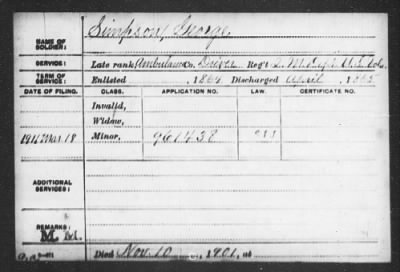 NAME OF SOLDIER: Simpson, George
SERVICE: Late rank, Ambulance Driver Reg't Q. M. Dept. U. S. Vols.
TERM OF SERVICE: Enlisted , 1864 Discharged April , 1865
DATE OF FILING. CLASS. APPLICATION NO. LAW. CERTIFICATE NO.
Invalid,
Widow,
1914 Mar. 18 Minor, 961438
ADDITIONAL SERVICES:
REMARKS:
Died Nov. 10 , 1901, at